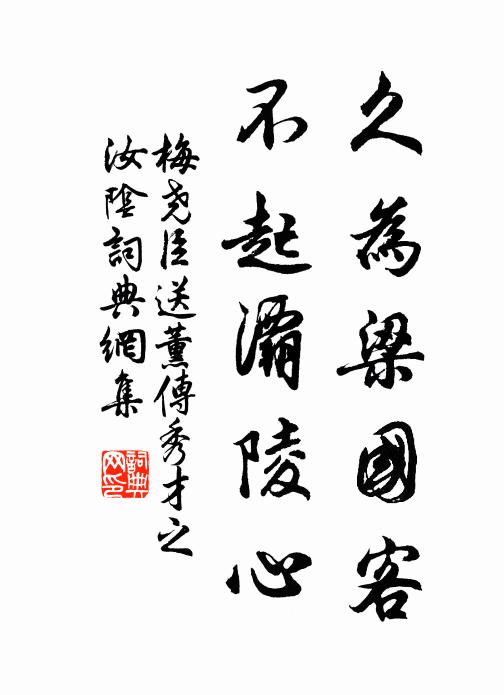 久為梁國客
不起灞陵心
梅堯臣送薰傅秀才之
汝陰詞典網集
詞典網印